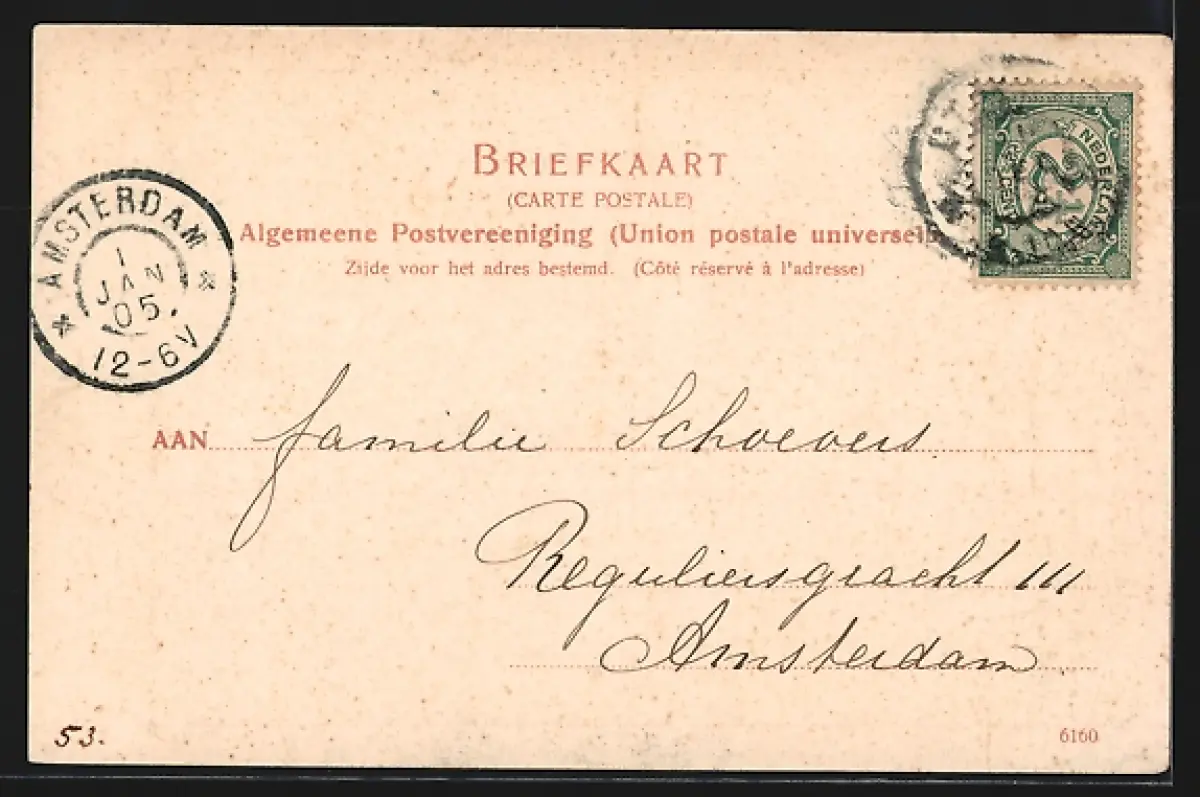 BRIEFKAART
(CARTE POSTALE)
Algemeene Postvereeniging (Union postale universel
Zijde voor het adres bestemd. (Côté réservé à l'adresse)
AMSTERDAM
1
JAN
05.
12-6V
NEDERLAND
2½
CENT
AAN familie Schoevers
Reguliersgracht 111
Amsterdam
53.
6160